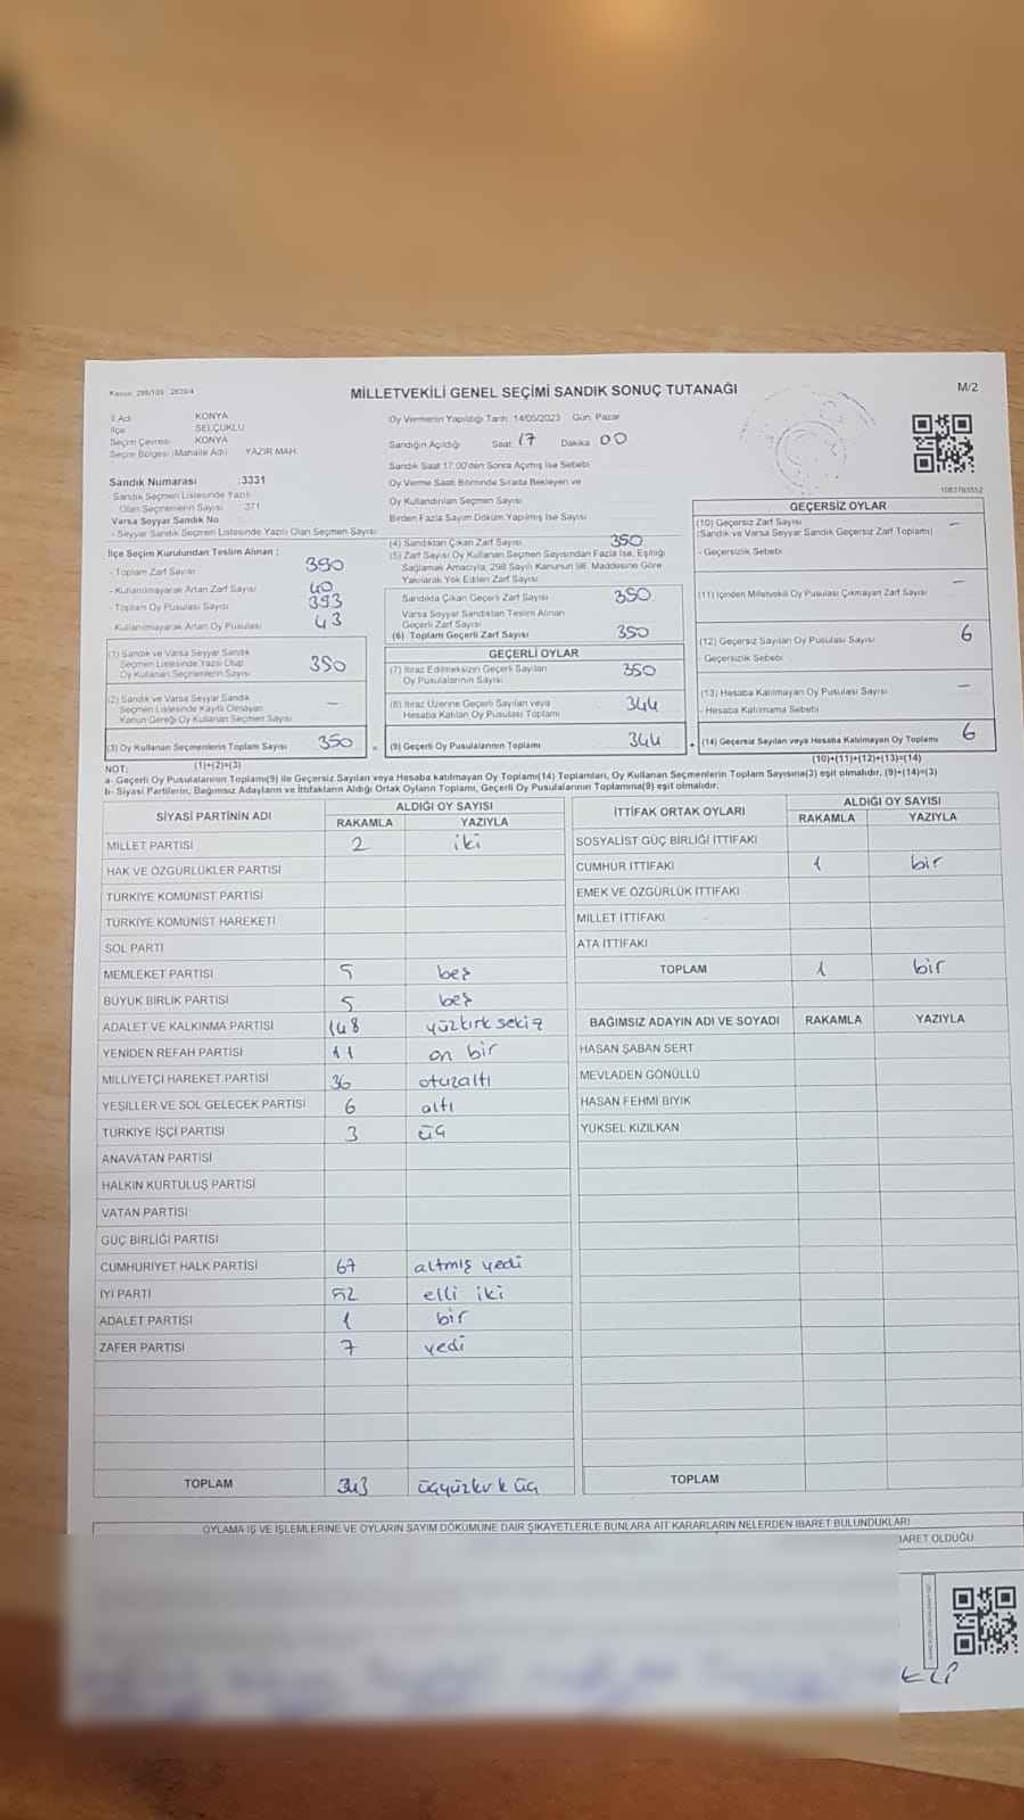 Kanun: 298/105 2839/4
MİLLETVEKİLİ GENEL SEÇİMİ SANDIK SONUÇ TUTANAĞI
M/2
İl Adı KONYA
İlçe SELÇUKLU
Seçim Çevresi KONYA
Seçim Bölgesi (Mahalle Adı) YAZIR MAH.
Oy Vermenin Yapıldığı Tarih: 14/05/2023 Gün: Pazar
Sandığın Açıldığı Saat: 17 Dakika 00
Sandık Saat 17.00'den Sonra Açılmış İse Sebebi
Oy Verme Saati Bitiminde Sırada Bekleyen ve
Oy Kullandırılan Seçmen Sayısı
Birden Fazla Sayım Döküm Yapılmış İse Sayısı
Sandık Numarası :3331
Sandık Seçmen Listesinde Yazılı
Olan Seçmenlerin Sayısı : 371
Varsa Seyyar Sandık No
- Seyyar Sandık Seçmen Listesinde Yazılı Olan Seçmen Sayısı
İlçe Seçim Kurulundan Teslim Alınan :
- Toplam Zarf Sayısı 390
- Kullanılmayarak Artan Zarf Sayısı 40
- Toplam Oy Pusulası Sayısı 393
- Kullanılmayarak Artan Oy Pusulası 43
(1) Sandık ve Varsa Seyyar Sandık
Seçmen Listesinde Yazılı Olup
Oy Kullanan Seçmenlerin Sayısı 350
(2) Sandık ve Varsa Seyyar Sandık
Seçmen Listesinde Kayıtlı Olmayan
Kanun Gereği Oy Kullanan Seçmen Sayısı —
(3) Oy Kullanan Seçmenlerin Toplam Sayısı 350
(1)+(2)=(3)
(4) Sandıktan Çıkan Zarf Sayısı 350
(5) Zarf Sayısı Oy Kullanan Seçmen Sayısından Fazla İse, Eşitliği
Sağlamak Amacıyla, 298 Sayılı Kanunun 98. Maddesine Göre
Yakılarak Yok Edilen Zarf Sayısı
Sandıkta Çıkan Geçerli Zarf Sayısı 350
Varsa Seyyar Sandıktan Teslim Alınan
Geçerli Zarf Sayısı
(6) Toplam Geçerli Zarf Sayısı 350
GEÇERLİ OYLAR
(7) İtiraz Edilmeksizin Geçerli Sayılan
Oy Pusulalarının Sayısı 350
(8) İtiraz Üzerine Geçerli Sayılan veya
Hesaba Katılan Oy Pusulası Toplamı 344
(9) Geçerli Oy Pusulalarının Toplamı 344
1083783552
GEÇERSİZ OYLAR
(10) Geçersiz Zarf Sayısı —
(Sandık ve Varsa Seyyar Sandık Geçersiz Zarf Toplamı)
- Geçersizlik Sebebi
(11) İçinden Milletvekili Oy Pusulası Çıkmayan Zarf Sayısı —
(12) Geçersiz Sayılan Oy Pusulası Sayısı 6
- Geçersizlik Sebebi
(13) Hesaba Katılmayan Oy Pusulası Sayısı —
- Hesaba Katılmama Sebebi
(14) Geçersiz Sayılan veya Hesaba Katılmayan Oy Toplamı 6
(10)+(11)+(12)+(13)=(14)
NOT:
a- Geçerli Oy Pusulalarının Toplamı(9) ile Geçersiz Sayılan veya Hesaba katılmayan Oy Toplamı(14) Toplamları, Oy Kullanan Seçmenlerin Toplam Sayısına(3) eşit olmalıdır. (9)+(14)=(3)
b- Siyasi Partilerin, Bağımsız Adayların ve İttifakların Aldığı Ortak Oyların Toplamı, Geçerli Oy Pusulalarının Toplamına(9) eşit olmalıdır.
SİYASİ PARTİNİN ADI ALDIĞI OY SAYISI
RAKAMLA YAZIYLA
MİLLET PARTİSİ 2 iki
HAK VE ÖZGÜRLÜKLER PARTİSİ
TÜRKİYE KOMÜNİST PARTİSİ
TÜRKİYE KOMÜNİST HAREKETİ
SOL PARTİ
MEMLEKET PARTİSİ 5 beş
BÜYÜK BİRLİK PARTİSİ 5 beş
ADALET VE KALKINMA PARTİSİ 148 yüzkırk sekiz
YENİDEN REFAH PARTİSİ 11 on bir
MİLLİYETÇİ HAREKET PARTİSİ 36 otuzaltı
YEŞİLLER VE SOL GELECEK PARTİSİ 6 altı
TÜRKİYE İŞÇİ PARTİSİ 3 üç
ANAVATAN PARTİSİ
HALKIN KURTULUŞ PARTİSİ
VATAN PARTİSİ
GÜÇ BİRLİĞİ PARTİSİ
CUMHURİYET HALK PARTİSİ 67 altmış yedi
İYİ PARTİ 52 elli iki
ADALET PARTİSİ 1 bir
ZAFER PARTİSİ 7 yedi
TOPLAM 343 üçyüzkırk üç
İTTİFAK ORTAK OYLARI ALDIĞI OY SAYISI
RAKAMLA YAZIYLA
SOSYALİST GÜÇ BİRLİĞİ İTTİFAKI
CUMHUR İTTİFAKI 1 bir
EMEK VE ÖZGÜRLÜK İTTİFAKI
MİLLET İTTİFAKI
ATA İTTİFAKI
TOPLAM 1 bir
BAĞIMSIZ ADAYIN ADI VE SOYADI RAKAMLA YAZIYLA
HASAN ŞABAN SERT
MEVLADEN GÖNÜLLÜ
HASAN FEHMİ BIYIK
YÜKSEL KIZILKAN
TOPLAM
OYLAMA İŞ VE İŞLEMLERİNE VE OYLARIN SAYIM DÖKÜMÜNE DAİR ŞİKAYETLERLE BUNLARA AİT KARARLARIN NELERDEN İBARET BULUNDUKLARI
İBARET OLDUĞU